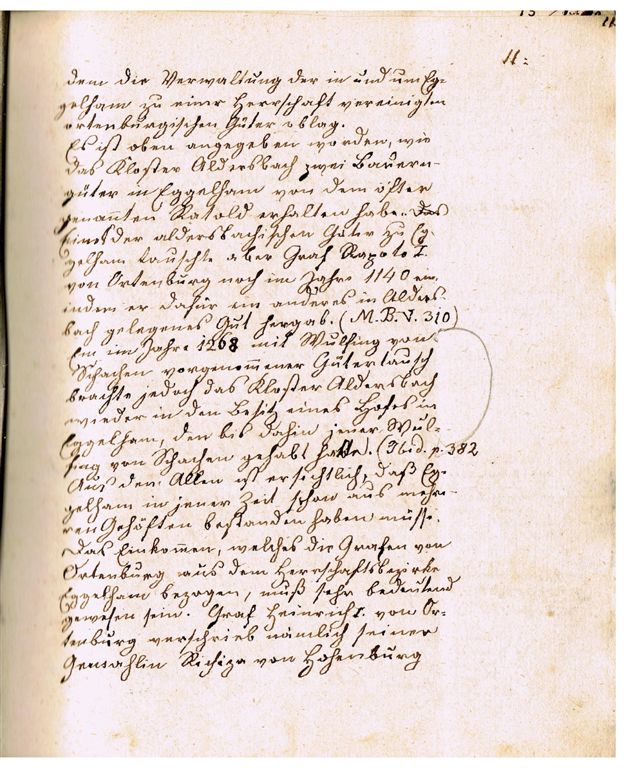 11.
dem die Verwaltung der in und um Eg-
gelham zu einer Herrschaft vereinigten
ortenburgischen Güter oblag.
Es ist oben angegeben worden, wie
das Kloster Aldersbach zwei Bauern-
güter in Eggelham von dem öfter
genannten Ratold erhalten habe. Das
Eine der aldersbachischen Güter zu Eg-
gelham tauschte aber Graf Rapoto I.
von Ortenburg noch im Jahre 1140 ein,
indem er dafür ein anderes in Alders-
bach gelegenes Gut hergab. (M. B. V. 310)
Ein im Jahre 1268 mit Wulfing von
Schachen vorgenommener Gütertausch
brachte jedoch das Kloster Aldersbach
wieder in den Besitz eines Hofes in
Eggelham, den bis dahin jener Wul-
fing von Schachen gehabt hatte. (Ibid. p. 382
Aus dem Allen ist ersichtlich, daß Eg-
gelham in jener Zeit schon aus mehre-
ren Gehöften bestanden haben müsse.
Das Einkommen, welches die Grafen von
Ortenburg aus dem Herrschaftsbezirke
Eggelham bezogen, muß sehr bedeutend
gewesen sein. Graf Heinrich I. von Or-
tenburg verschrieb nämlich seiner
Gemahlin Richiza von Hohenburg